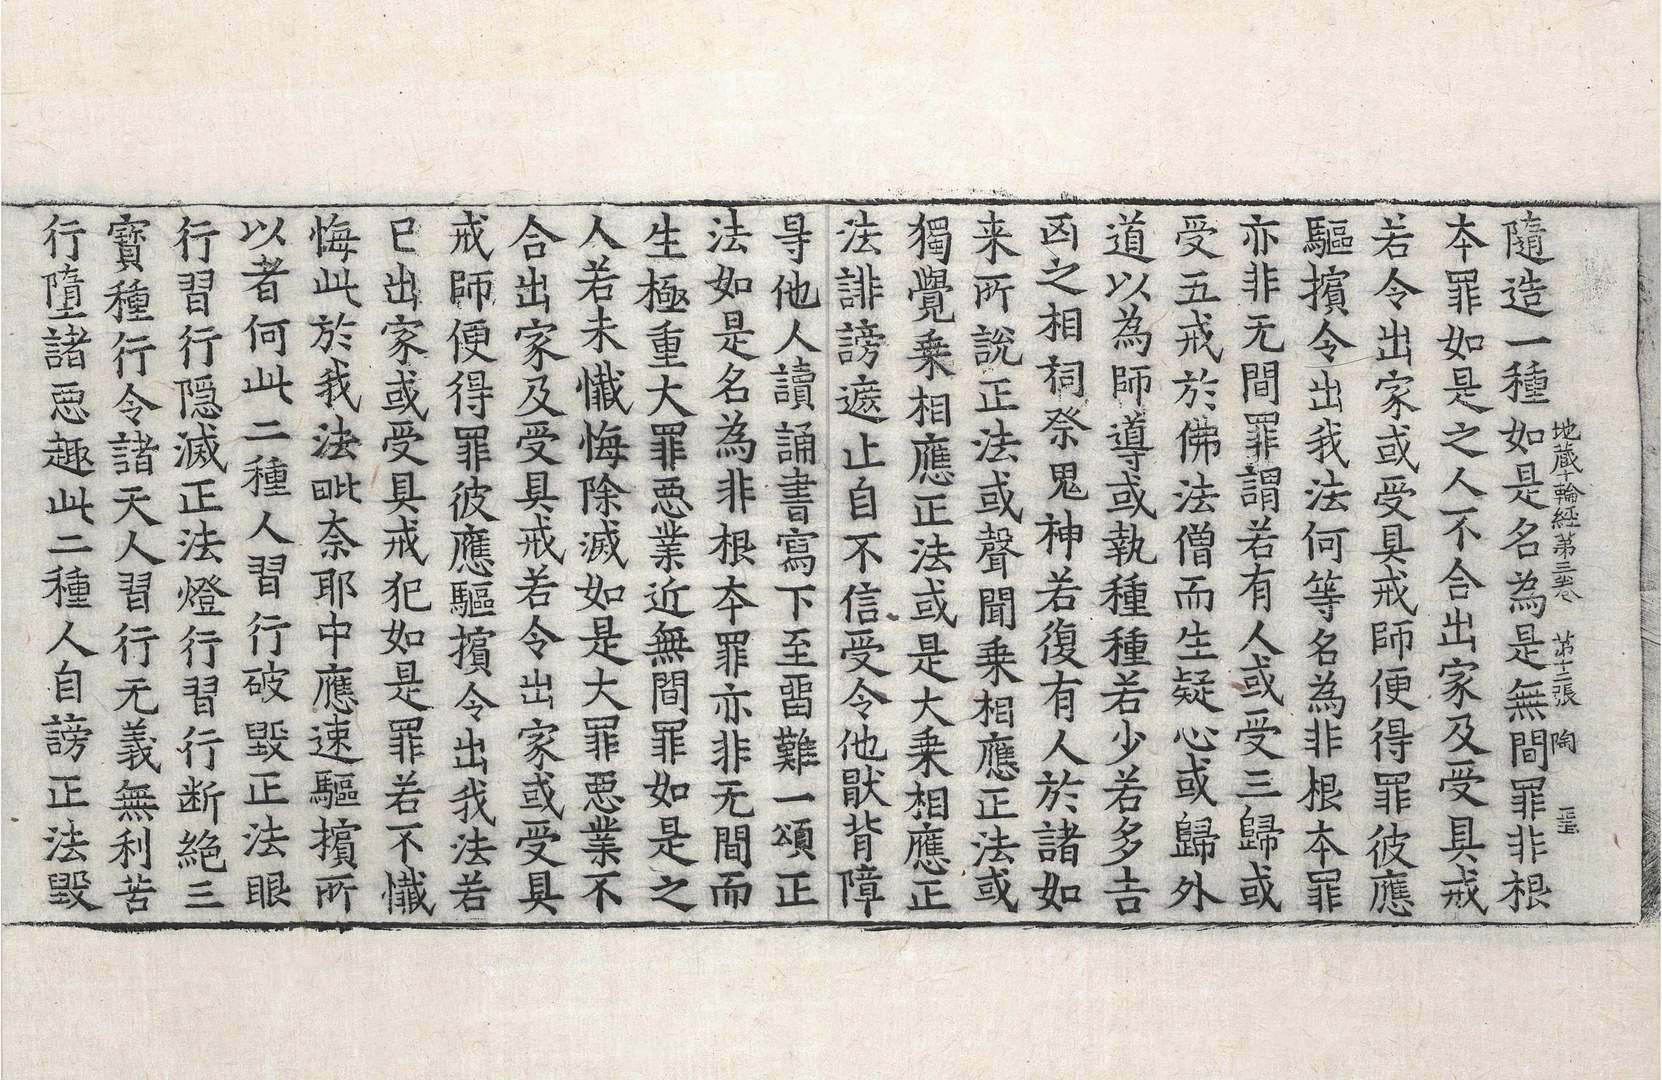 地蔵十輪經第三卷 第十二張 陶
隨造一種如是名為是無間罪非根
本罪如是之人不合出家及受具戒
若令出家或受具戒師便得罪彼應
驅擯令出我法何等名為非根本罪
亦非无間罪謂若有人或受三歸或
受五戒於佛法僧而生疑心或歸外
道以為師導或執種種若少若多吉
凶之相祠祭鬼神若復有人於諸如
来所說正法或聲聞乗相應正法或
獨覺乗相應正法或是大乗相應正
法誹謗遮止自不信受令他猒背障
㝵他人讀誦書寫下至畱難一頌正
法如是名為非根本罪亦非无間而
生極重大罪惡業近無間罪如是之
人若未懺悔除滅如是大罪惡業不
合出家及受具戒若令出家或受具
戒師便得罪彼應驅擯令出我法若
已出家或受具戒犯如是罪若不懺
悔此於我法毗奈耶中應速驅擯所
以者何此二種人習行破毀正法眼
行習行隱滅正法燈行習行断絶三
寳種行令諸天人習行无義無利苦
行墮諸惡趣此二種人自謗正法毀